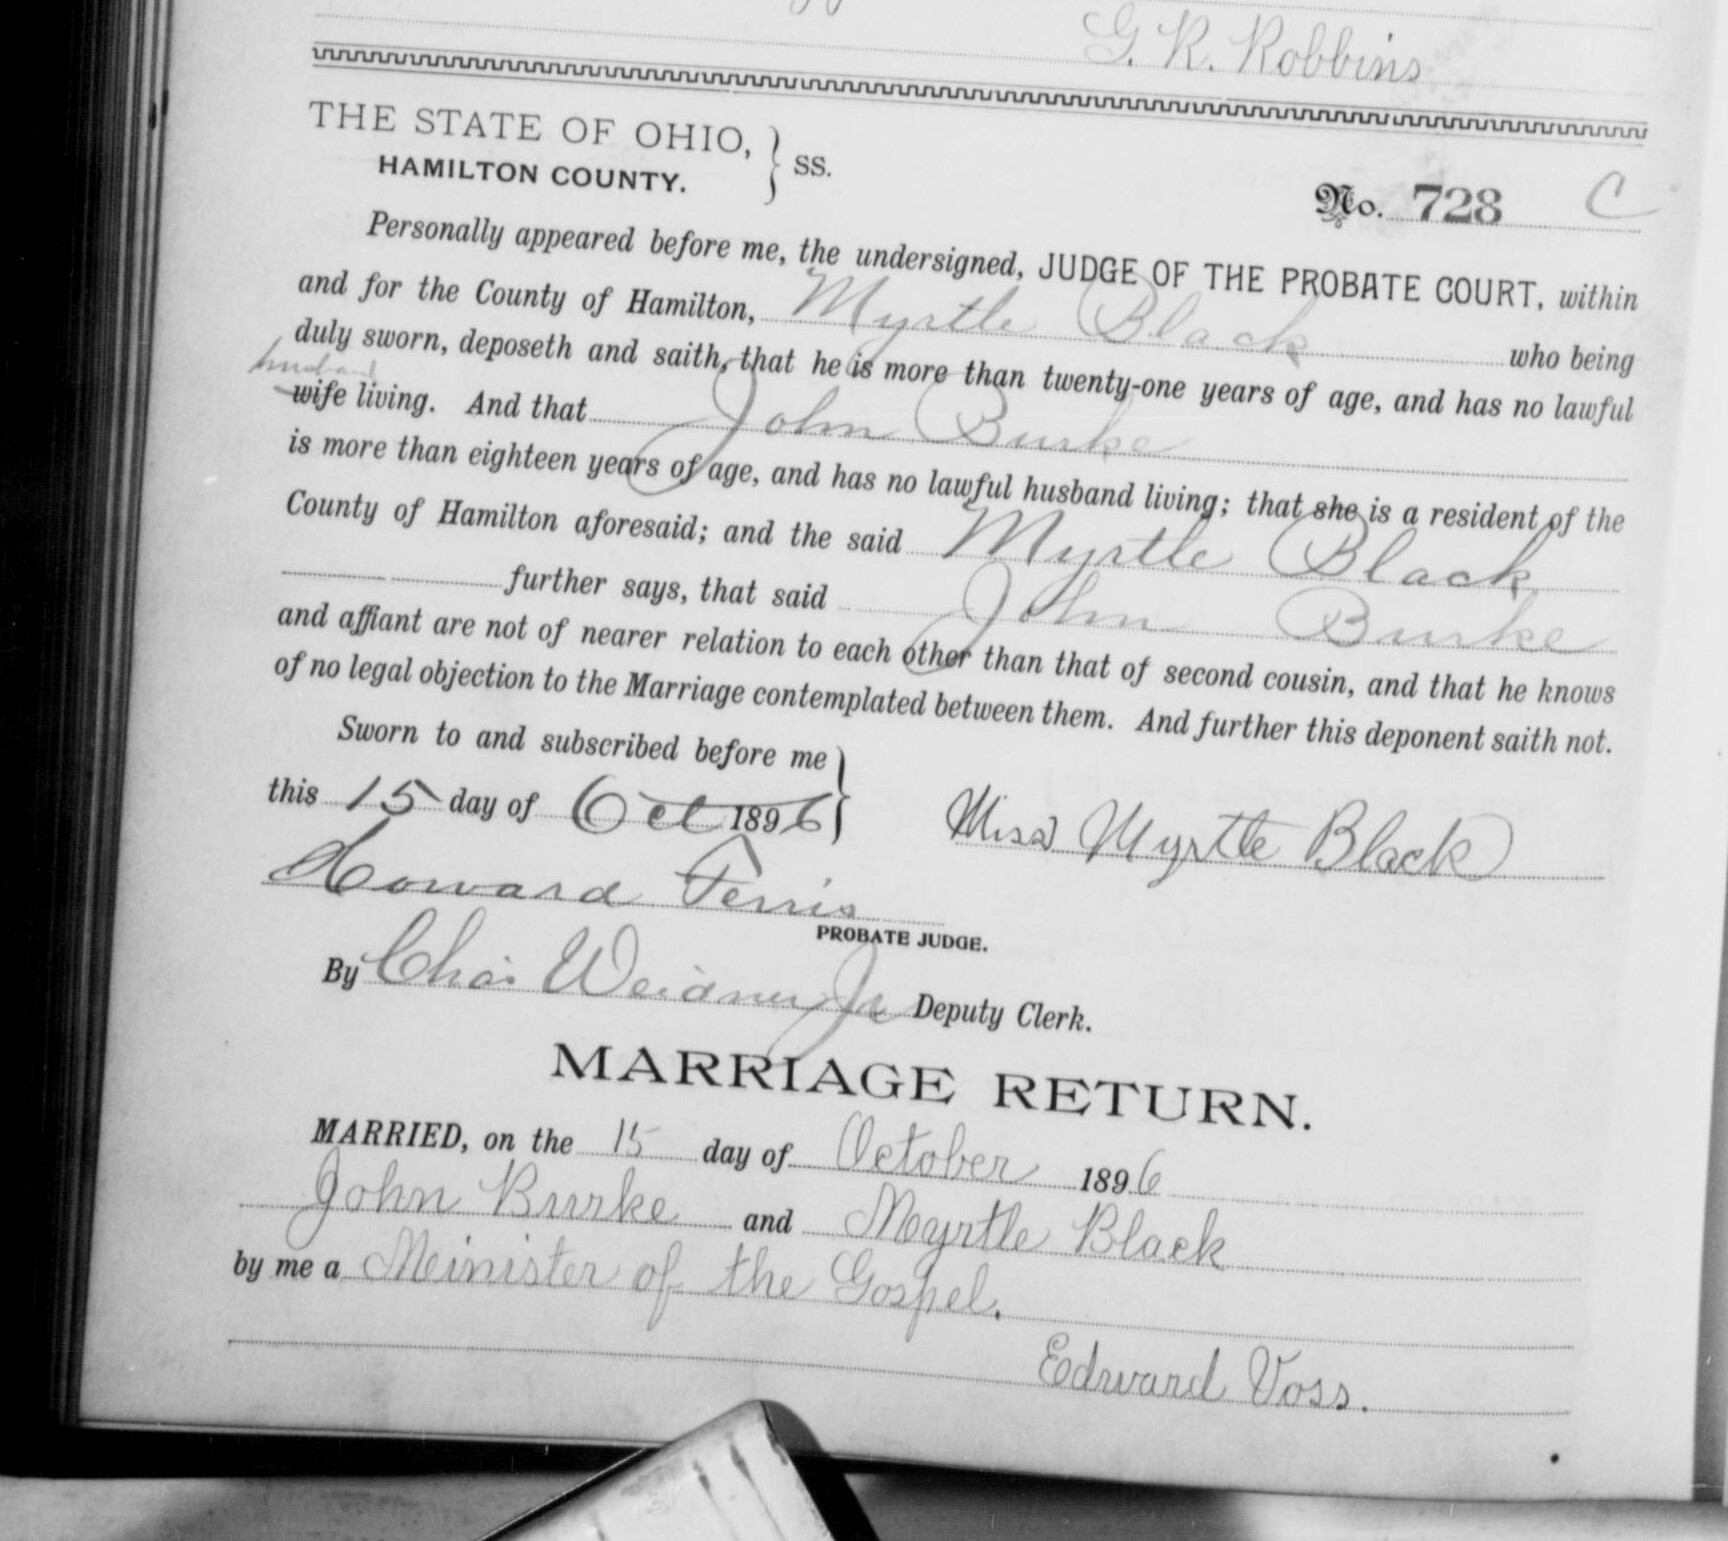 G. R. Robbins
THE STATE OF OHIO, } SS.
HAMILTON COUNTY.
No. 728 C
Personally appeared before me, the undersigned, JUDGE OF THE PROBATE COURT, within
and for the County of Hamilton, Myrtle Black who being
duly sworn, deposeth and saith, that he is more than twenty-one years of age, and has no lawful
husband
wife living. And that John Burke
is more than eighteen years of age, and has no lawful husband living; that she is a resident of the
County of Hamilton aforesaid; and the said Myrtle Black
further says, that said John Burke
and affiant are not of nearer relation to each other than that of second cousin, and that he knows
of no legal objection to the Marriage contemplated between them. And further this deponent saith not.
Sworn to and subscribed before me }
this 15 day of Oct 1896
Miss Myrtle Black
Howard Ferris
PROBATE JUDGE.
By Chas Weidner Jr Deputy Clerk.
MARRIAGE RETURN.
MARRIED, on the 15 day of October 1896
John Burke and Myrtle Black
by me a Minister of the Gospel.
Edward Voss.